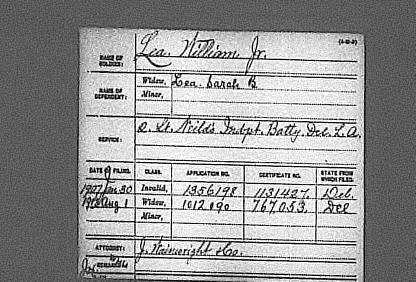 (3-B-P)
NAME OF SOLDIER: Lea, William Jr.
NAME OF DEPENDENT: Widow, Lea, Sarah B.
Minor,
SERVICE: Lt. Neild's Indpt. Batty. Del. L.A.
DATE OF FILING. CLASS. APPLICATION NO. CERTIFICATE NO. STATE FROM WHICH FILED.
1907 Jan 30 Invalid, 1356198 1131427. Del.
Aug 1 Widow, 1012090 767,053. Del
Minor,
ATTORNEY: J. Wainwright & Co.
REMARKS: